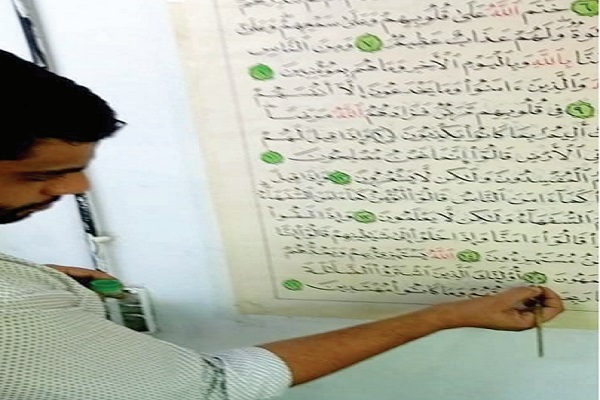 ٦ خَتَمَ ٱللَّهُ عَلَىٰ قُلُوبِهِمْ وَعَلَىٰ سَمْعِهِمْ وَعَلَىٰ
وَلَهُمْ عَذَابٌ عَظِيمٌ ٧ وَمِنَ ٱلنَّاسِ
بِٱللَّهِ وَبِٱلْيَوْمِ ٱلْأَخِرِ وَمَا هُم بِمُؤْمِنِينَ ٨
وَٱلَّذِينَ ءَامَنُوا۟ وَمَا يَخْدَعُونَ إِلَّآ أَنفُسَهُمْ
٩ فِى قُلُوبِهِم مَّرَضٌ فَزَادَهُمُ ٱللَّهُ مَرَضًا
أَلِيمٌۢ بِمَا كَانُوا۟ يَكْذِبُونَ ١٠ وَإِذَا قِيلَ لَهُمْ
فِى ٱلْأَرْضِ قَالُوٓا۟ إِنَّمَا نَحْنُ مُصْلِحُونَ ١١
ٱلْمُفْسِدُونَ وَلَٰكِن لَّا يَشْعُرُونَ ١٢ وَإِذَا قِيلَ
كَمَآ ءَامَنَ ٱلنَّاسُ قَالُوٓا۟ أَنُؤْمِنُ كَمَآ ءَامَنَ ٱلسُّفَهَآءُ
ٱلسُّفَهَآءُ وَلَٰكِن لَّا يَعْلَمُونَ ١٣ وَإِذَا لَقُوا۟
قَالُوٓا۟ ءَامَنَّا وَإِذَا خَلَوْا۟ إِلَىٰ شَيَٰطِينِهِمْ قَالُوٓا۟ إِنَّا
مُسْتَهْزِءُونَ ١٤ ٱللَّهُ يَسْتَهْزِئُ بِهِمْ وَيَمُدُّهُمْ
يَعْمَهُونَ ١٥ أُو۟لَٰٓئِكَ ٱلَّذِينَ ٱشْتَرَوُا۟ ٱلضَّلَٰلَةَ
وَمَا كَانُوا۟ مُهْتَدِينَ ١٦